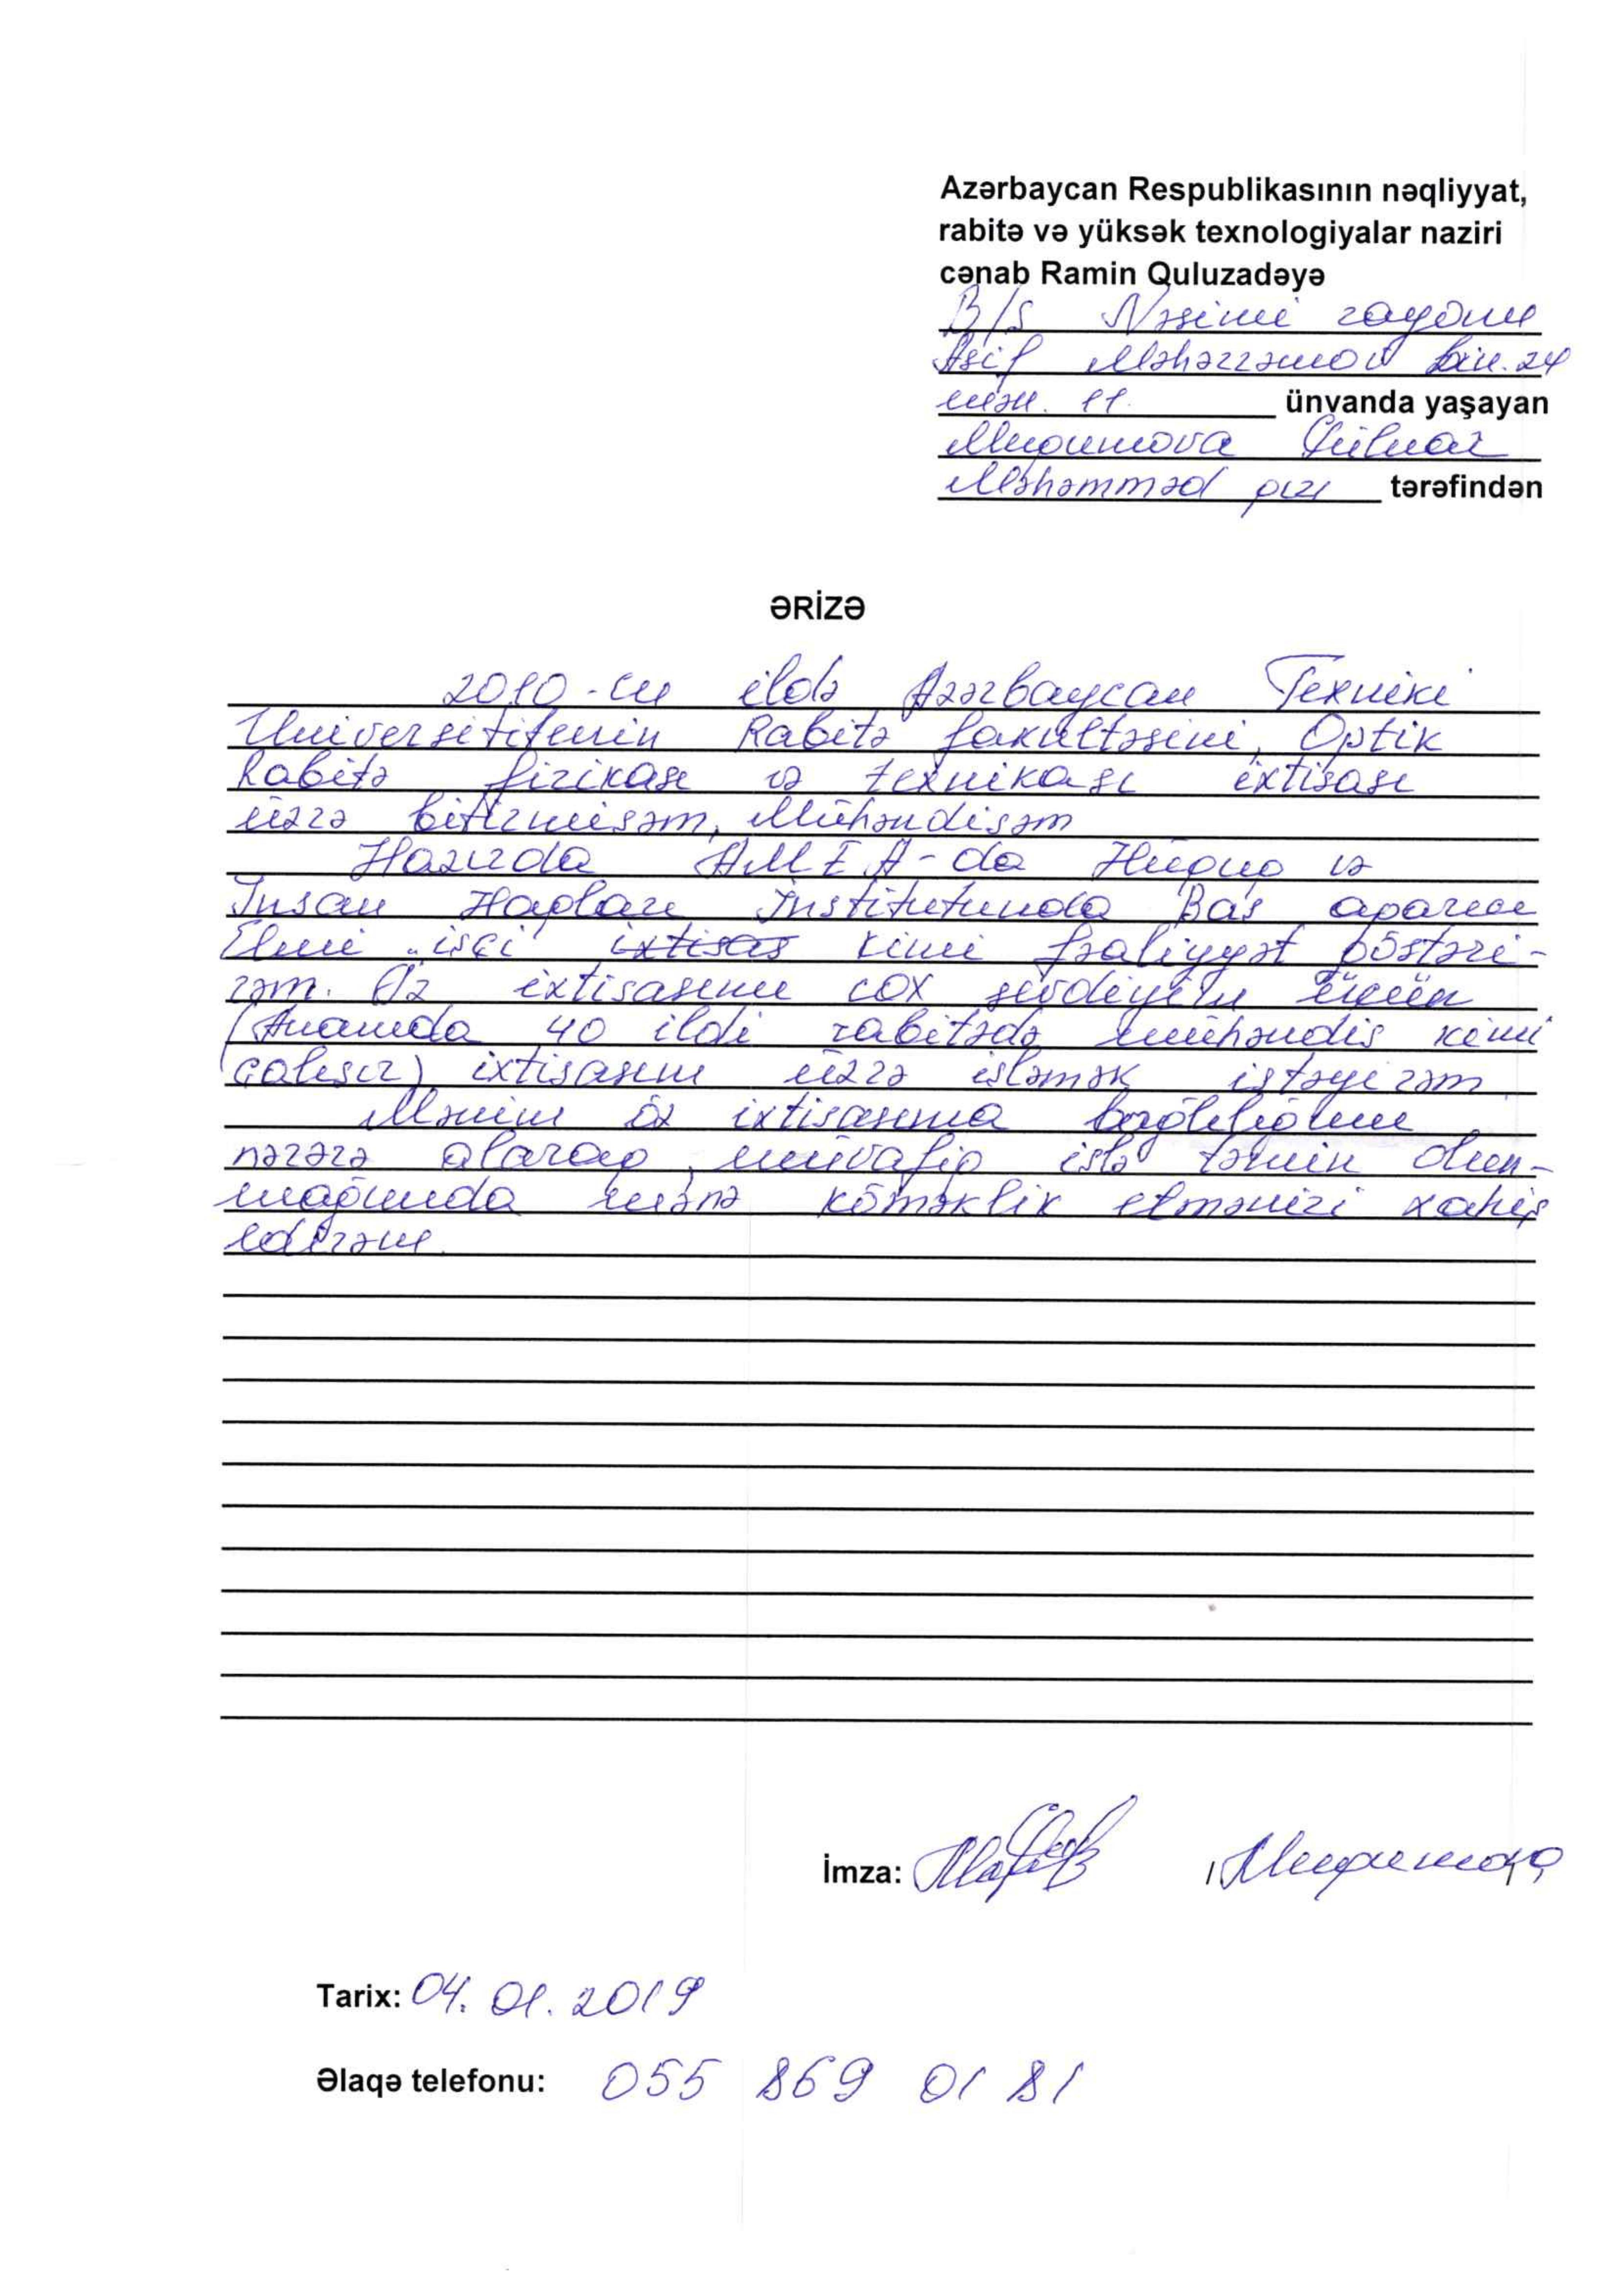 Azərbaycan Respublikasının nəqliyyat,
rabitə və yüksək texnologiyalar naziri
cənab Ramin Quluzadəyə
B/ş Nəsimi rayonu
Asif Məhərrəmov bin. 24
mən. 11. ünvanda yaşayan
Muqumova Gülnar
Məhəmməd qızı tərəfindən
ƏRİZƏ
2010-cu ildə Azərbaycan Texniki
Universititenin Rabitə fakültəsini, Optik
Rabitə fizikası və texnikası ixtisası
üzrə bitirmişəm, Mühəndisəm
Hazırda AMEA-da Hüquq və
İnsan Haqları İnstitutunda Baş aparıcı
Elmi işçi ixtisas kimi fəaliyyət göstəri-
rəm. Öz ixtisasımı çox sevdiyim üçün
(Anamda 40 ildi rabitədə mühəndis kimi
çalışır) ixtisasım üzrə işləmək istəyirəm
Mənim öz ixtisasıma bağlılığımı
nəzərə alaraq, müvafiq işlə təmin olun-
mağımda mənə köməklik etmənizi xahiş
edirəm.
İmza:
Tarix: 04.01.2019
Əlaqə telefonu: 055 869 01 81